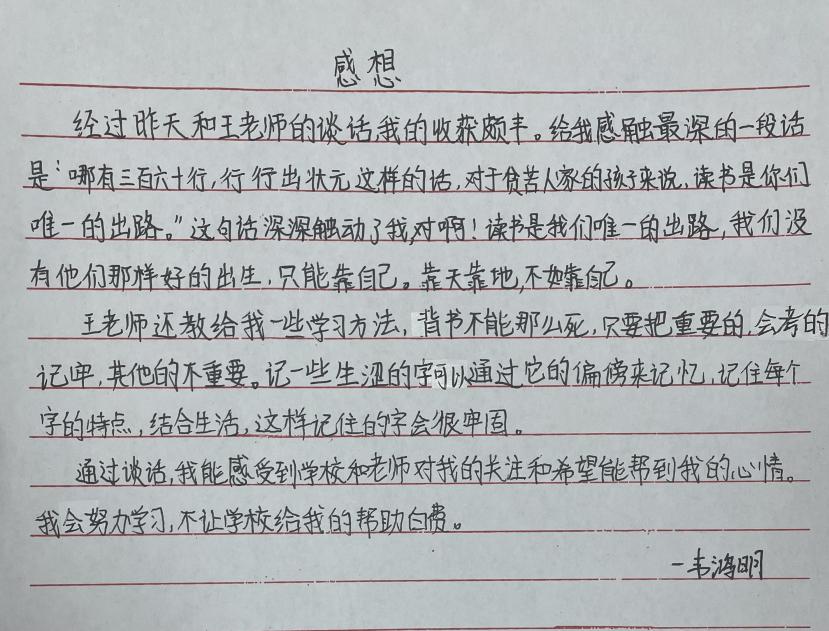 感想
经过昨天和王老师的谈话,我的收获颇丰。给我感触最深的一段话
是:"哪有三百六十行,行行出状元这样的话,对于贫苦人家的孩子来说,读书是你们
唯一的出路。"这句话深深触动了我,对啊!读书是我们唯一的出路,我们没
有他们那样好的出生,只能靠自己。靠天靠地,不如靠自己。
王老师还教给我一些学习方法,背书不能那么死,只要把重要的,会考的
记牢,其他的不重要。记一些生涩的字可以通过它的偏傍来记忆,记住每个
字的特点,结合生活,这样记住的字会很牢固。
通过谈话,我能感受到学校和老师对我的关注和希望能帮到我的心情。
我会努力学习,不让学校给我的帮助白费。
一韦鸿明